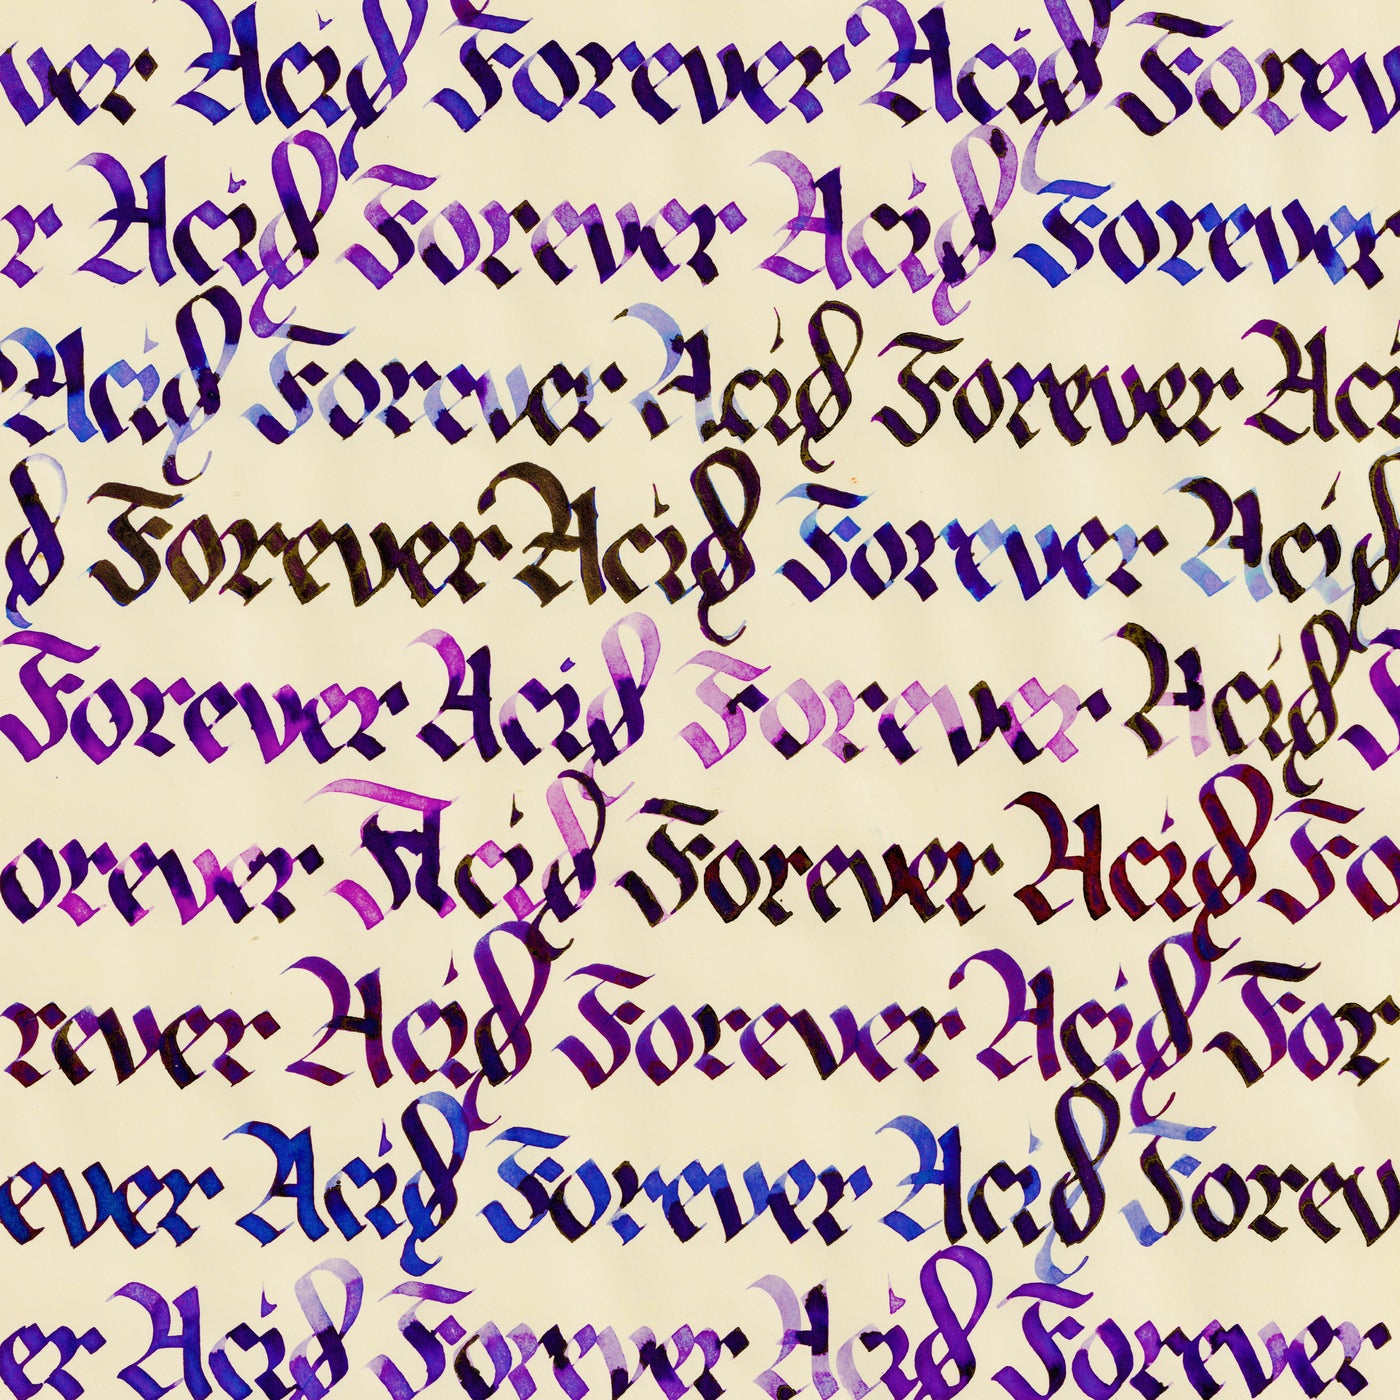 ver Acid Forever Acid Forev
r Acid Forever Acid Forever
Acid Forever Acid Forever Aci
d Forever Acid Forever Acid
Forever Acid Forever Acid F
orever Acid Forever Acid Fo
rever Acid Forever Acid For
ever Acid Forever Acid Forev
er Acid Forever Acid Forever